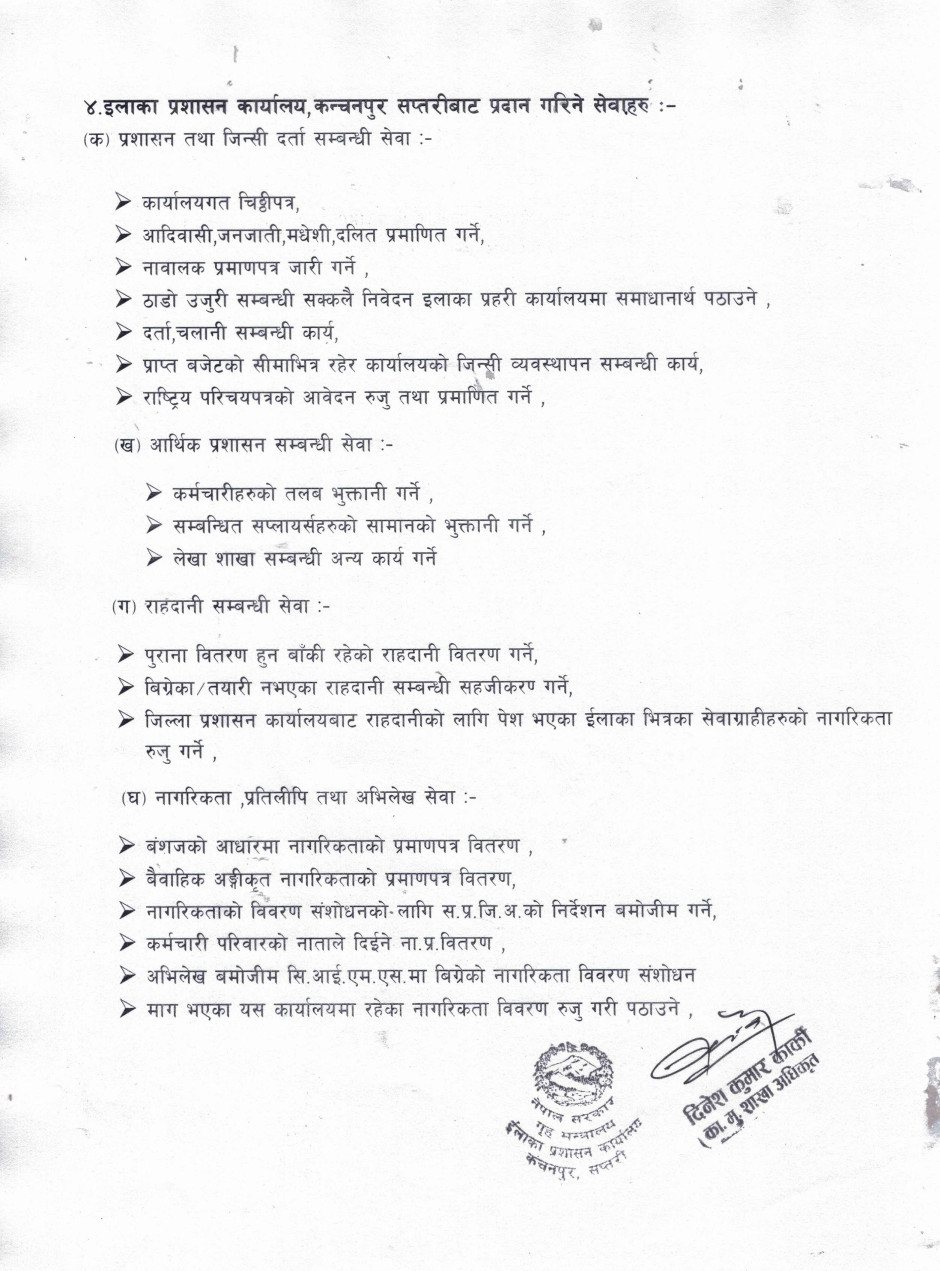 ४.इलाका प्रशासन कार्यालय,कन्चनपुर सप्तरीबाट प्रदान गरिने सेवाहरु :–
(क) प्रशासन तथा जिन्सी दर्ता सम्बन्धी सेवा :–
➢ कार्यालयगत चिठ्ठीपत्र,
➢ आदिवासी,जनजाती,मधेशी,दलित प्रमाणित गर्ने,
➢ नावालक प्रमाणपत्र जारी गर्ने ,
➢ ठाडो उजुरी सम्बन्धी सक्कलै निवेदन इलाका प्रहरी कार्यालयमा समाधानार्थ पठाउने ,
➢ दर्ता,चलानी सम्बन्धी कार्य,
➢ प्राप्त बजेटको सीमाभित्र रहेर कार्यालयको जिन्सी व्यवस्थापन सम्बन्धी कार्य,
➢ राष्ट्रिय परिचयपत्रको आवेदन रुजु तथा प्रमाणित गर्ने ,
(ख) आर्थिक प्रशासन सम्बन्धी सेवा :–
➢ कर्मचारीहरुको तलब भुक्तानी गर्ने ,
➢ सम्बन्धित सप्लायर्सहरुको सामानको भुक्तानी गर्ने ,
➢ लेखा शाखा सम्बन्धी अन्य कार्य गर्ने
(ग) राहदानी सम्बन्धी सेवा :–
➢ पुराना वितरण हुन बाँकी रहेको राहदानी वितरण गर्ने,
➢ बिग्रेका/तयारी नभएका राहदानी सम्बन्धी सहजीकरण गर्ने,
➢ जिल्ला प्रशासन कार्यालयबाट राहदानीको लागि पेश भएका ईलाका भित्रका सेवाग्राहीहरुको नागरिकता
रुजु गर्ने ,
(घ) नागरिकता ,प्रतिलीपि तथा अभिलेख सेवा :–
➢ बंशजको आधारमा नागरिकताको प्रमाणपत्र वितरण ,
➢ बैवाहिक अङ्गीकृत नागरिकताको प्रमाणपत्र वितरण,
➢ नागरिकताको विवरण संशोधनको लागि स.प्र.जि.अ.को निर्देशन बमोजीम गर्ने,
➢ कर्मचारी परिवारको नाताले दिईने ना.प्र.वितरण ,
➢ अभिलेख बमोजीम सि.आई.एम.एस.मा बिग्रेको नागरिकता विवरण संशोधन
➢ माग भएका यस कार्यालयमा रहेका नागरिकता विवरण रुजु गरी पठाउने ,
नेपाल सरकार
गृह मन्त्रालय
ईलाका प्रशासन कार्यालय
कंचनपुर, सप्तरी
दिनेश कुमार कार्की
(का.मु. शाखा अधिकृत